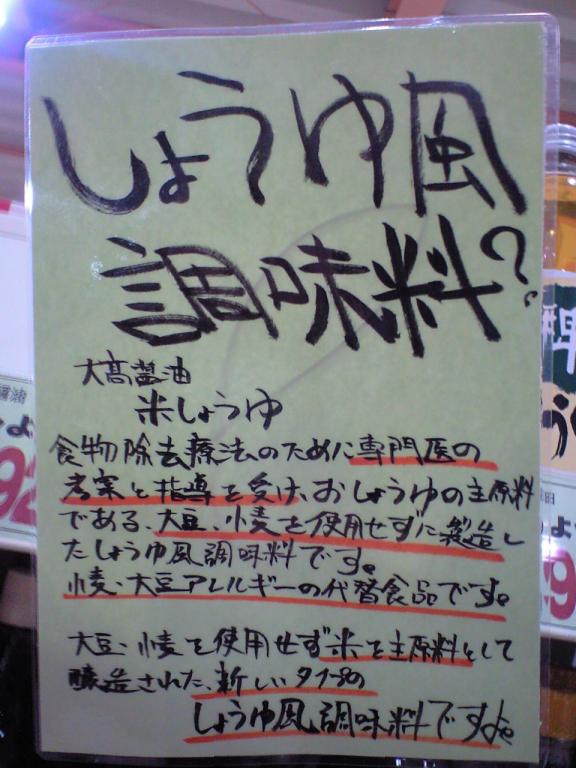 しょうゆ風
調味料?
大高醤油
米しょうゆ
食物除去療法のために専門医の
考案と指導を受け、おしょうゆの主原料
である、大豆、小麦を使用せずに製造し
たしょうゆ風調味料です。
小麦・大豆アレルギーの代替食品です。
大豆・小麦を使用せず米を主原料として
醸造された、新しいタイプの
しょうゆ風調味料ですよ。